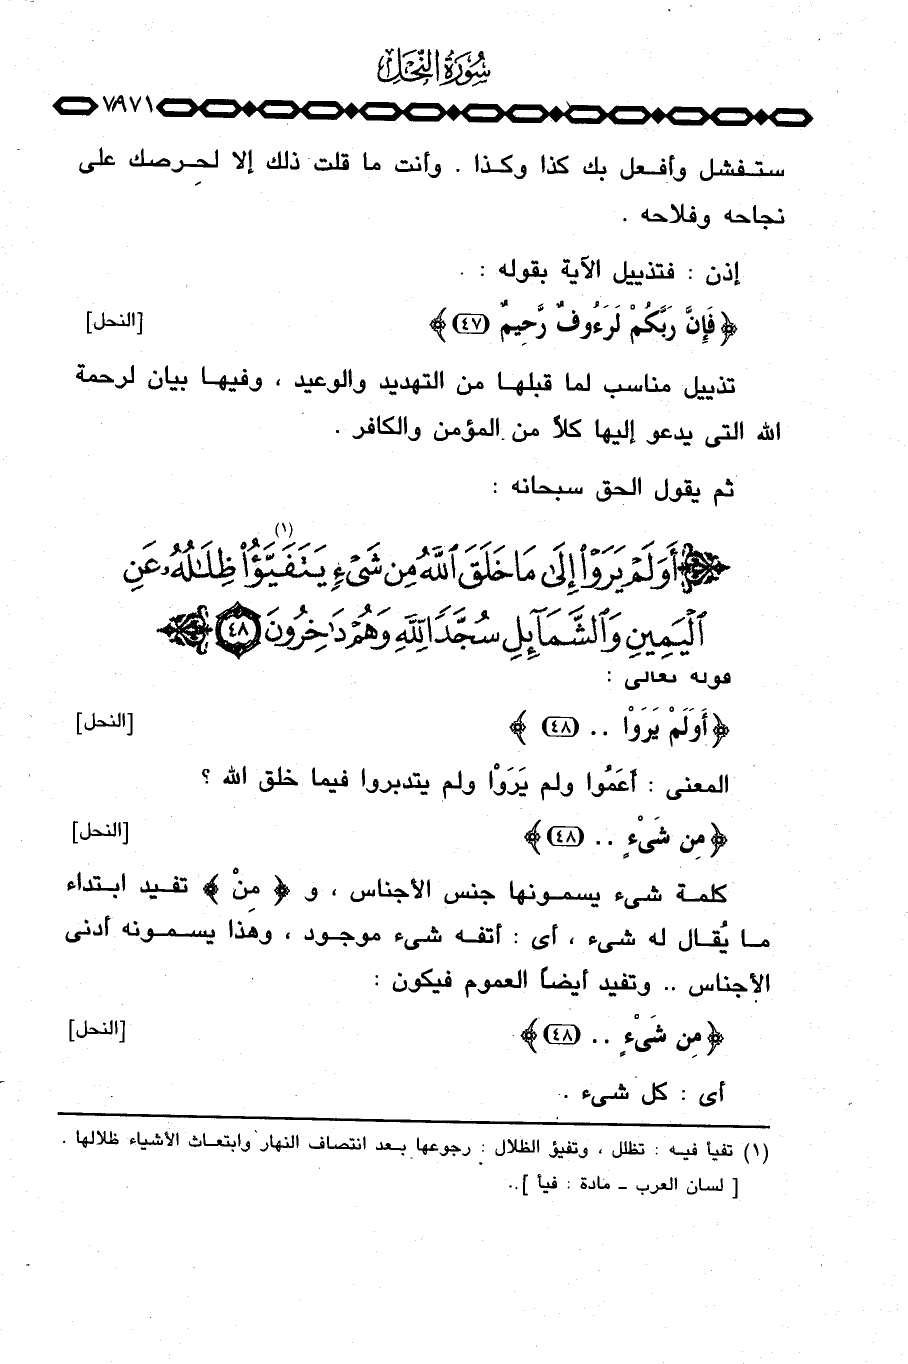 سُورَةُ النَّحْلِ
٧٩٧١
ستـفشل وأفـعل بك كذا وكـذا . وأنت ما قلت ذلك إلا لحـرصك على
نجاحه وفلاحه .
إذن : فتذييل الآية بقوله :
﴿ فَإِنَّ رَبَّكُمْ لَرَءُوفٌ رَّحِيمٌ (٤٧) ﴾ [النحل]
تذييل مناسب لما قبلهـا من التهديد والوعيد ، وفيهـا بيان لرحمة
الله التى يدعو إليها كلاً من المؤمن والكافر .
ثم يقول الحق سبحانه :
﴿ أَوَلَمْ يَرَوْا۟ إِلَىٰ مَا خَلَقَ ٱللَّهُ مِن شَىْءٍ يَتَفَيَّؤُا۟ (١) ظِلَـٰلُهُۥ عَنِ
ٱلْيَمِينِ وَٱلشَّمَآئِلِ سُجَّدًا لِّلَّهِ وَهُمْ دَٰخِرُونَ ٤٨ ﴾
قوله تعالى :
﴿ أَوَلَمْ يَرَوْا .. (٤٨) ﴾ [النحل]
المعنى : أعَمُوا ولم يَرَوْا ولم يتدبروا فيما خلق الله ؟
﴿ مِن شَىْءٍ .. (٤٨) ﴾ [النحل]
كلمـة شىء يسمـونها جنس الأجناس ، و ﴿ مِنْ ﴾ تفـيد ابـتداء
مـا يُقـال له شىء ، أى : أتفـه شىء موجـود ، وهذا يسمـونه أدنى
الأجناس .. وتفيد أيضاً العموم فيكون :
﴿ مِن شَىْءٍ .. (٤٨) ﴾ [النحل]
أى : كل شىء .
(١) تفيأ فيـه : تظلل ، وتفيؤ الظلال : رجوعها بعـد انتصاف النهار وابتعـاث الأشياء ظلالها .
[ لسان العرب - مادة : فيأ ] ..